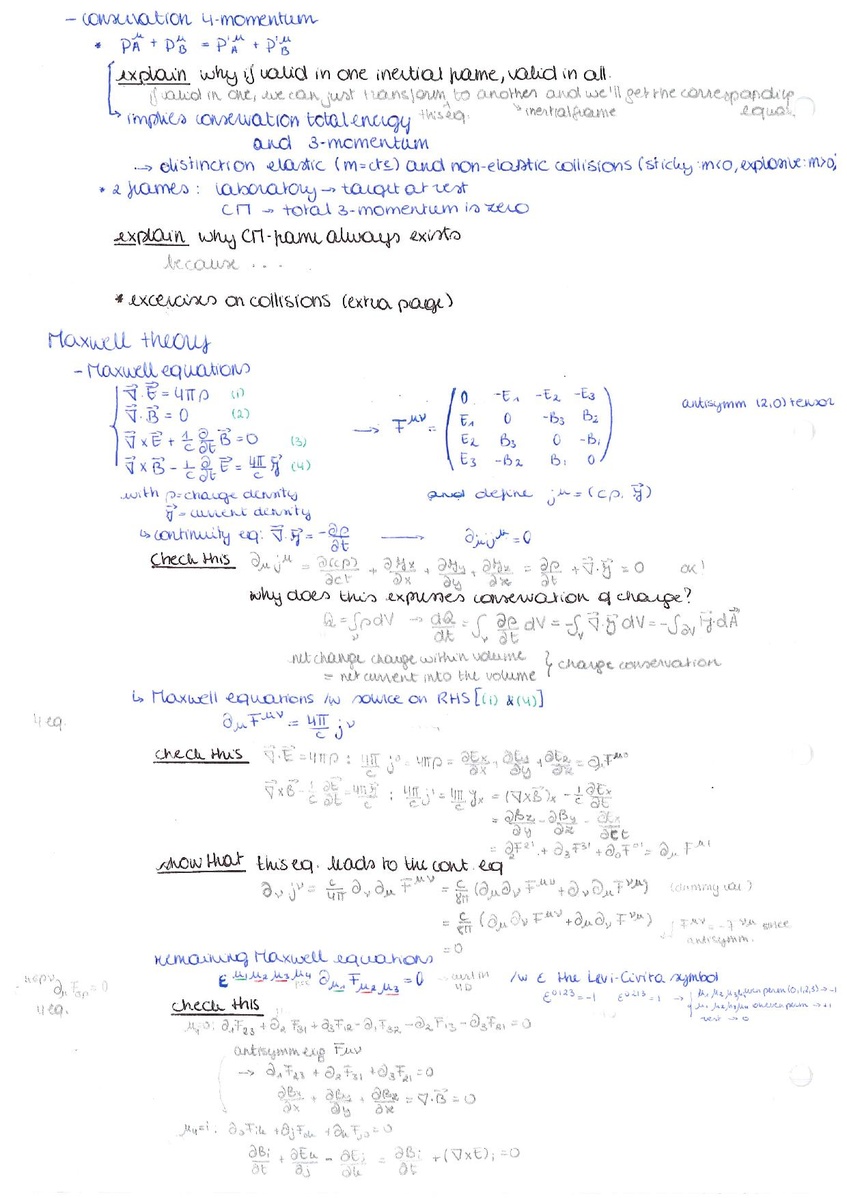 - conservation 4-momentum
* P_A^μ + P_B^μ = P'_A^μ + P'_B^μ
explain why if valid in one inertial frame, valid in all.
if valid in one, we can just transform this eq. to another inertial frame and we'll get the corresponding equa.
↳ implies conservation total energy
and 3-momentum
→ distinction elastic (m=cte) and non-elastic collisions (sticky: m<0, explosive: m>0)
* 2 frames: laboratory → target at rest
CM → total 3-momentum is zero
explain why CM-frame always exists
because ...
* excercises on collisions (extra page)
Maxwell theory
- Maxwell equations
∇·E = 4πρ (1)
∇·B = 0 (2)
∇×E + 1/c ∂/∂t B = 0 (3)
∇×B - 1/c ∂/∂t E = 4π/c J (4)
→ F^μν = ( 0 -E₁ -E₂ -E₃
E₁ 0 -B₃ B₂
E₂ B₃ 0 -B₁
E₃ -B₂ B₁ 0 )
antisymm (2,0) tensor
with ρ = charge density
J = current density
and define j^μ = (cρ, J)
↳ continuity eq: ∇·J = -∂ρ/∂t → ∂_μ j^μ = 0
Check this ∂_μ j^μ = ∂(cρ)/∂ct + ∂Jx/∂x + ∂Jy/∂y + ∂Jz/∂z = ∂ρ/∂t + ∇·J = 0 ok!
why does this expresses conservation of charge?
Q = ∫_V ρ dV → dQ/dt = ∫_V ∂ρ/∂t dV = -∫_V ∇·J dV = -∫_∂V J·dA
net change charge within volume
= net current into the volume } charge conservation
↳ Maxwell equations /w source on RHS [(1) & (4)]
4 eq. ∂_μ F^μν = 4π/c j^ν
check this ∇·E = 4πρ : 4π/c j⁰ = 4πρ = ∂Ex/∂x + ∂Ey/∂y + ∂Ez/∂z = ∂_μ F^μ0
∇×B - 1/c ∂E/∂t = 4π/c J : 4π/c j¹ = 4π/c Jx = (∇×B)x - 1/c ∂Ex/∂t
= ∂Bz/∂y - ∂By/∂z - ∂Ex/∂ct
= ∂₂F²¹ + ∂₃F³¹ + ∂₀F⁰¹ = ∂_μ F^μ1
show that this eq. leads to the cont. eq
∂_ν j^ν = c/4π ∂_ν ∂_μ F^μν = c/8π (∂_μ ∂_ν F^μν + ∂_ν ∂_μ F^νμ) (dummy var)
= c/8π (∂_μ ∂_ν F^μν + ∂_μ ∂_ν F^νμ) F^μν = -F^νμ since antisymm.
= 0
remaining Maxwell equations
ε^μ₁μ₂μ₃μ₄ ∂_μ₁ F_μ₂μ₃ = 0 /w ε the Levi-Civita symbol
4 eq.
ε⁰¹²³ = -1 ε⁰²¹³ = 1
check this
μ₄=0: ∂₁F₂₃ + ∂₂F₃₁ + ∂₃F₁₂ - ∂₁F₃₂ - ∂₂F₁₃ - ∂₃F₂₁ = 0
antisymm eig Fμν
→ ∂₁F₂₃ + ∂₂F₃₁ + ∂₃F₂₁ = 0
∂Bx/∂x + ∂By/∂y + ∂Bz/∂z = ∇·B = 0
μ₄=i: ∂₀F_ik + ∂_jF_0k + ∂_kF_j0 = 0
∂Bi/∂t + ∂Ek/∂j - ∂Ej/∂k = ∂Bi/∂t + (∇×E)i = 0